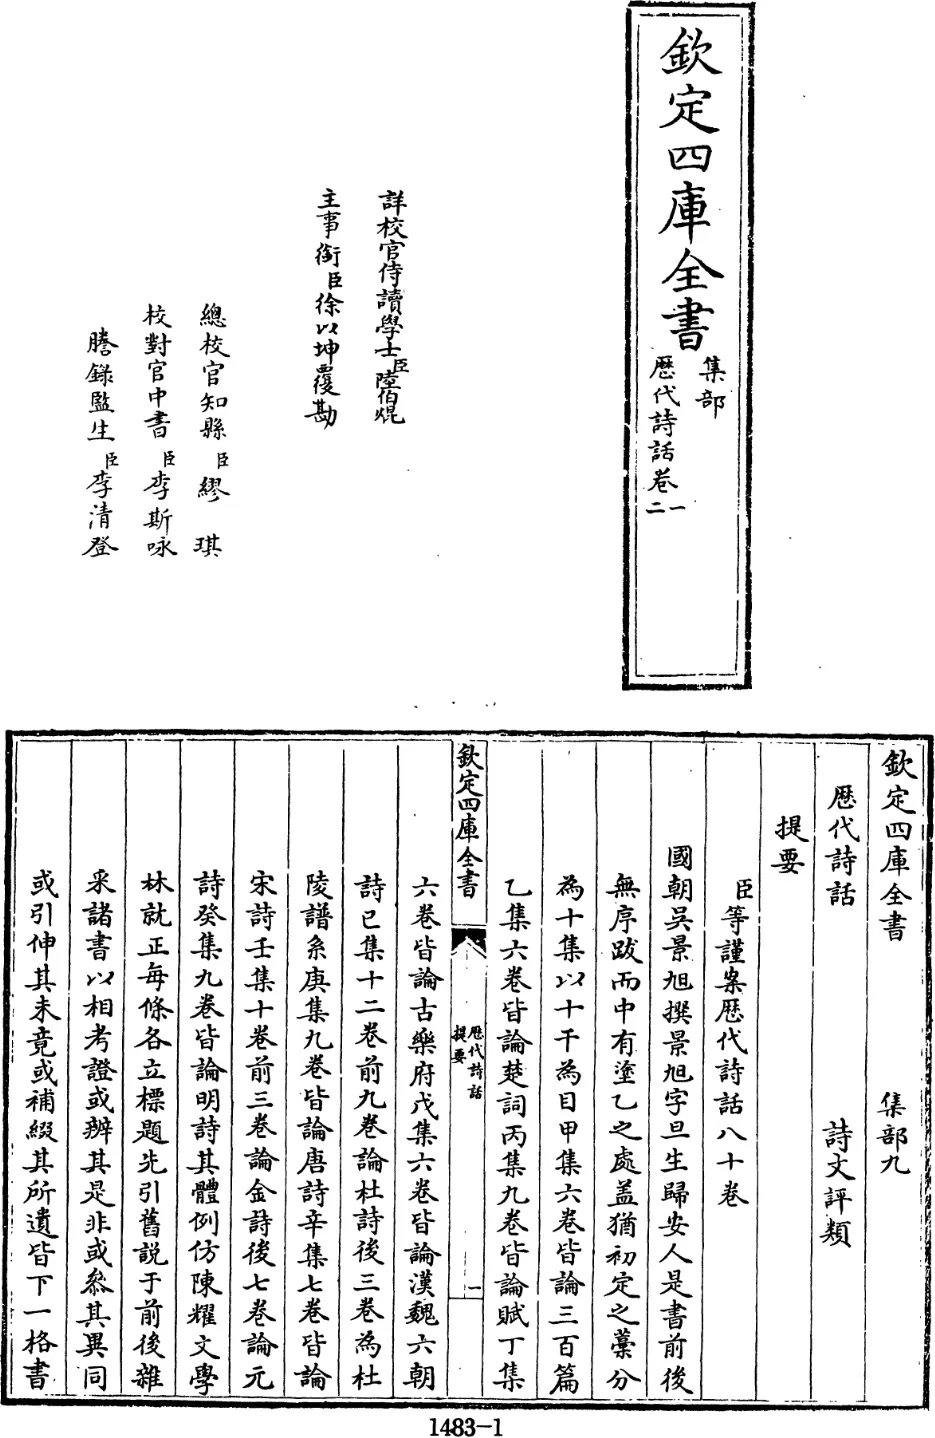 欽定四庫全書
集部
歷代詩話卷一
二
詳校官侍讀學士臣陸伯焜
主事銜臣徐以坤覆勘
總校官知縣臣繆琪
校對官中書臣李斯咏
謄錄監生臣李清登
欽定四庫全書 集部九
歷代詩話 詩文評類
提要
臣等謹案歷代詩話八十卷
國朝吳景旭撰景旭字旦生歸安人是書前後
無序跋而中有塗乙之處盖猶初定之藁分
為十集以十干為目甲集六卷皆論三百篇
乙集六卷皆論楚詞丙集九卷皆論賦丁集
欽定四庫全書
歷代詩話
提要
一
六卷皆論古樂府戊集六卷皆論漢魏六朝
詩已集十二卷前九卷論杜詩後三卷為杜
陵譜系庚集九卷皆論唐詩辛集七卷皆論
宋詩壬集十卷前三卷論金詩後七卷論元
詩癸集九卷皆論明詩其體例仿陳耀文學
林就正每條各立標題先引舊說于前後雜
采諸書以相考證或辨其是非或叅其異同
或引伸其未竟或補綴其所遺皆下一格書
1483-1